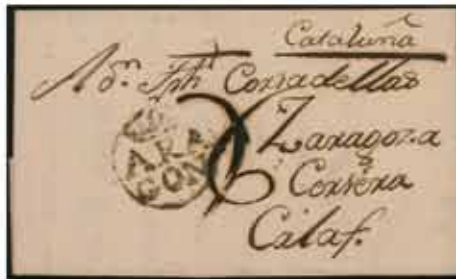 Cataluña
A Dn. Jph Corradellas
Zaragoza
Cervera
Calaf.